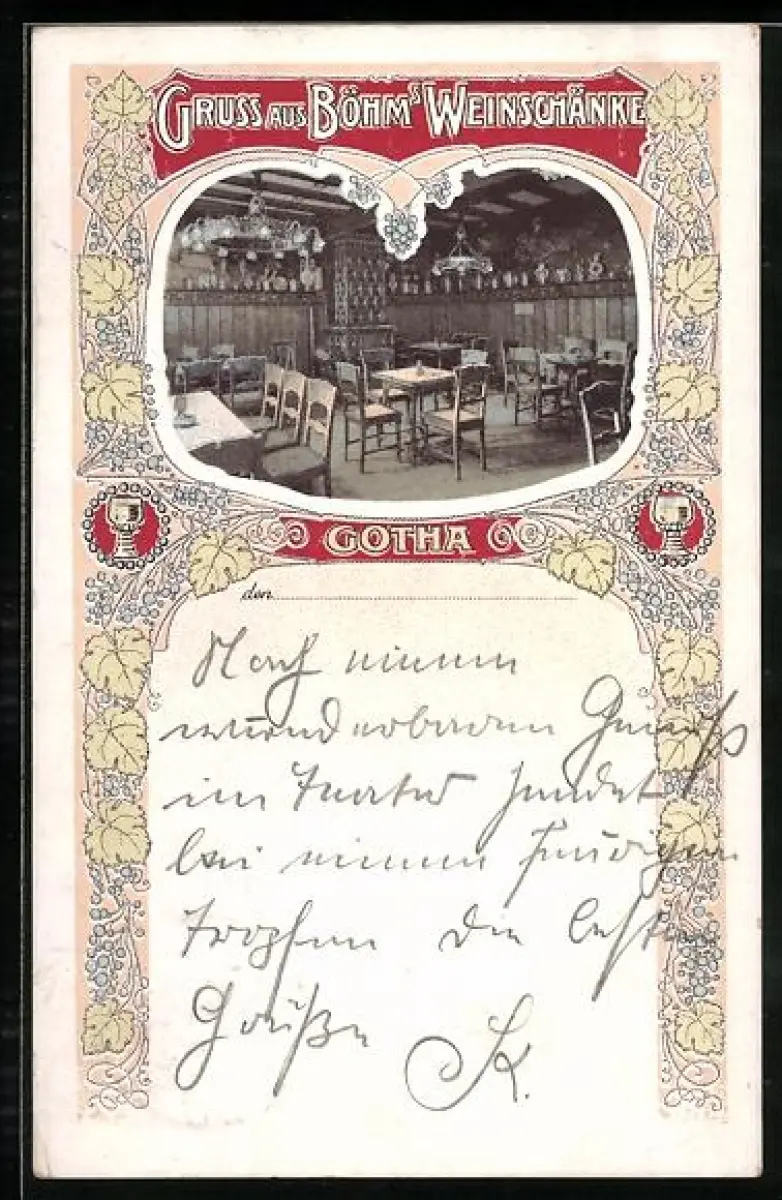 GRUSS AUS BÖHMS WEINSCHÄNKE
GOTHA
den
Nach einem
wunderbaren Genuß
im Theater sendet
bei einem feurigen
Tropfen die besten
Grüße K.